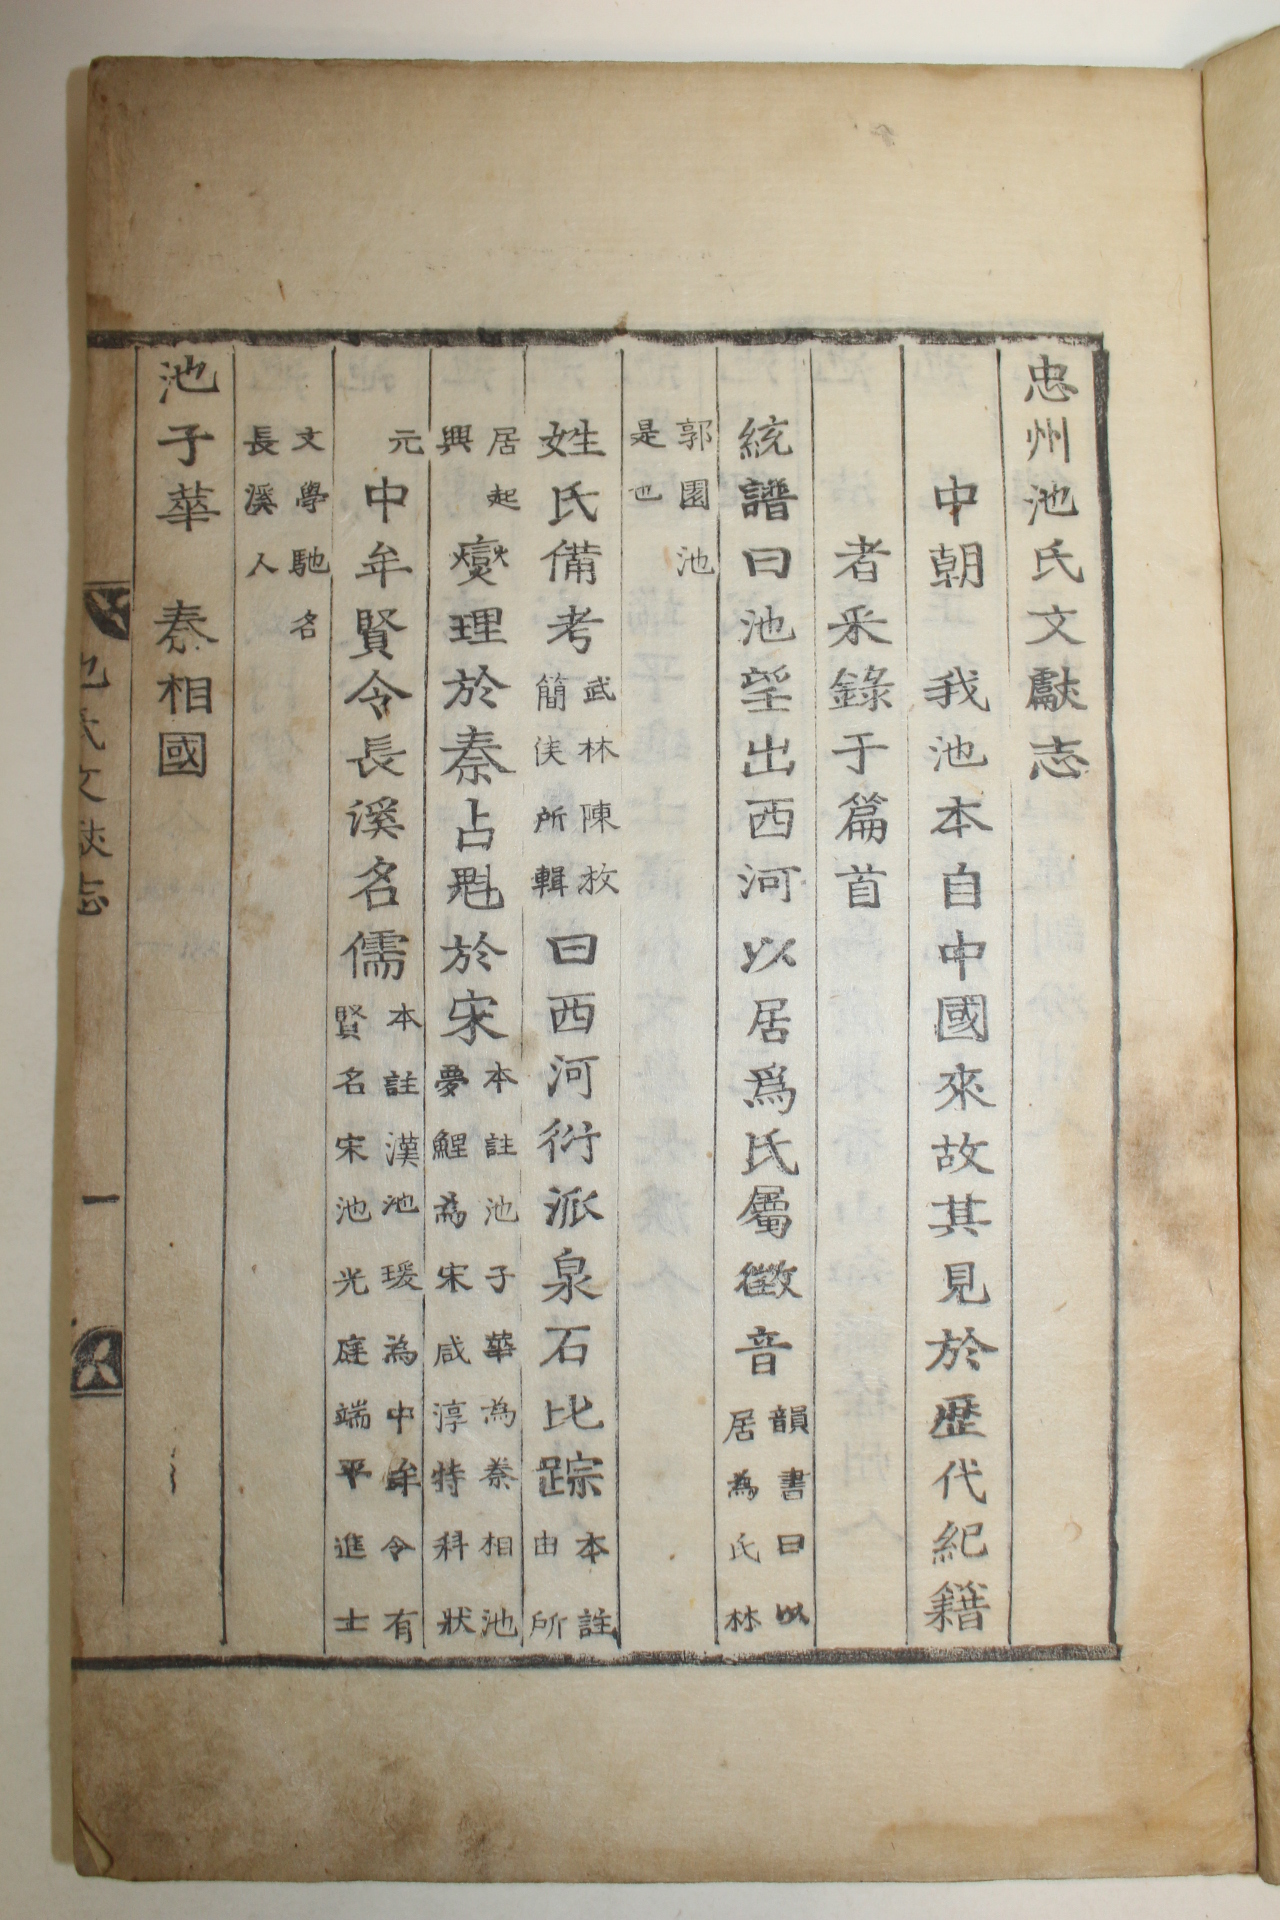 忠州池氏文獻志
中朝 我池本自中國來故其見於歴代紀籍
者采錄于篇首
統譜曰池望出西河以居爲氏屬徵音韻書曰以居為氏林
郭園池是也
姓氏備考武林陳枚簡侯所輯曰西河衍派泉石比踪本註由所
居起興燮理於秦占魁於宋本註池子華為秦相池夢鯉為宋咸淳特科狀
元中牟賢令長溪名儒本註漢池瑗為中牟令有賢名宋池光庭端平進士
文學馳名長溪人
池子華 秦相國
池氏文獻志 一